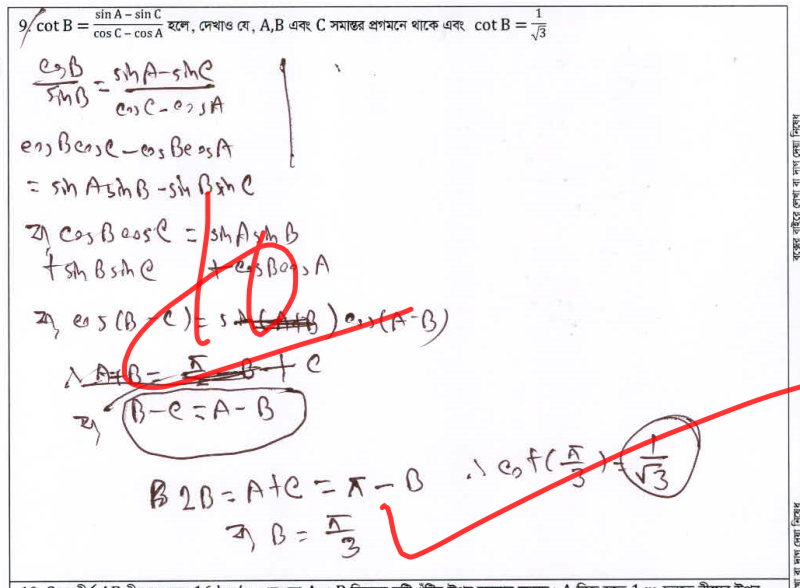 9. cot B = (sin A – sin C)/(cos C – cos A) হলে, দেখাও যে, A,B এবং C সমান্তর প্রগমনে থাকে এবং cot B = 1/√3
cosB/sinB = (sinA-sinC)/(cosC-cosA)
cosBcosC-cosBcosA
= sinAsinB-sinBsinC
বা, cosBcosC = sinAsinB
+sinBsinC + cosBcosA
বা, cos(B-C) = cos(A-B)
বা, B-C = A-B
2B = A+C = π-B
বা, B = π/3
∴ cot(π/3) = 1/√3
10
বক্সের বাইরে লেখা বা দাগ দেয়া নিষেধ
বা দাগ দেয়া নিষেধ